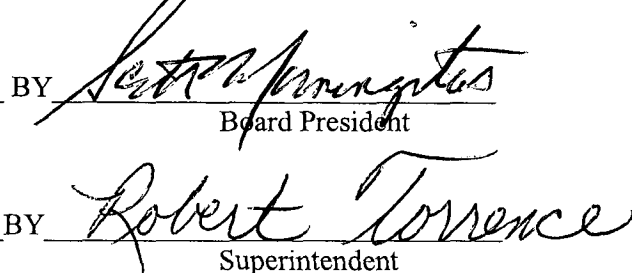 BY Seth Morningstar
Board President
BY Robert Torrence
Superintendent